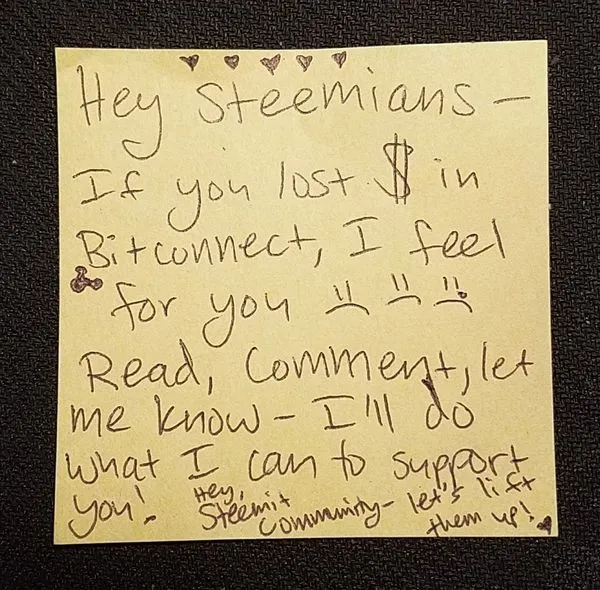 Hey Steemians —
If you lost $ in
Bitconnect, I feel
for you
Read, Comment, let
me know - I'll do
what I can to support
you!
Hey,
Steemit
Community - let's lift
them up!